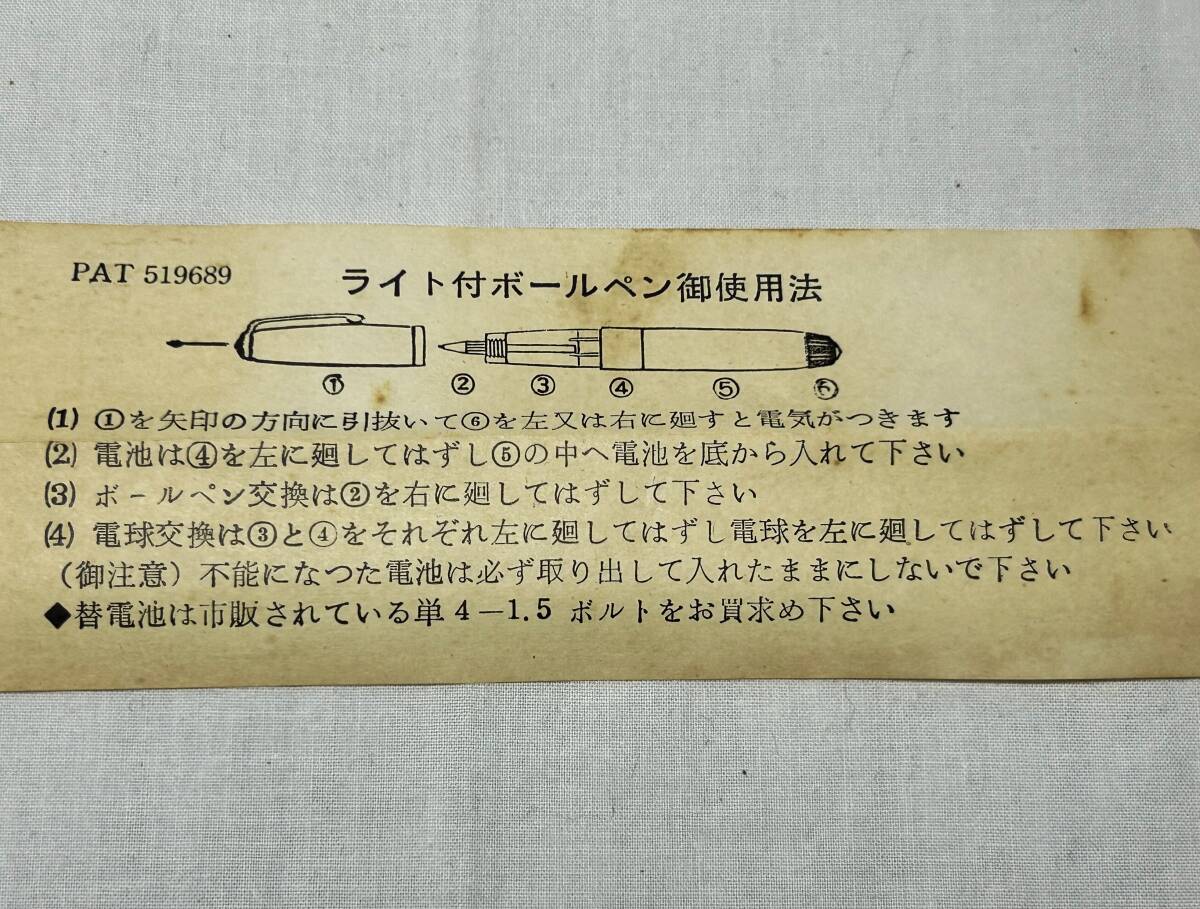 PAT 519689
ライト付ボールペン御使用法
① ② ③ ④ ⑤ ⑥
(1) ①を矢印の方向に引抜いて⑥を左又は右に廻すと電気がつきます
(2) 電池は④を左に廻してはずし⑤の中へ電池を底から入れて下さい
(3) ボールペン交換は②を右に廻してはずして下さい
(4) 電球交換は③と④をそれぞれ左に廻してはずし電球を左に廻してはずして下さい
(御注意) 不能になつた電池は必ず取り出して入れたままにしないで下さい
◆替電池は市販されている単4－1.5 ボルトをお買求め下さい